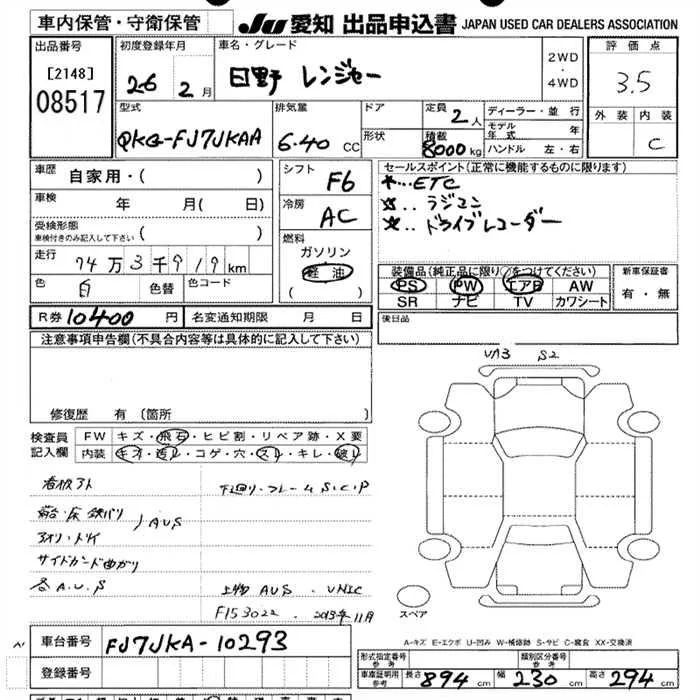 車内保管・守衛保管
JU 愛知 出品申込書 JAPAN USED CAR DEALERS ASSOCIATION
出品番号
[2148]
08517
初度登録年月
26 2月
車名・グレード
日野 レンジャー
2WD
・
4WD
評価点
3.5
外装 内装
C
型式
QKG-FJ7JKAA
排気量
6.40 CC
ドア
形状
定員 2人
積載 8000kg
ディーラー・並行
モデル年式 年
ハンドル 左・右
車歴 自家用・( )
車検 年 月( 日)
受検形態
車検付きのみ記入して下さい ( )
走行 74万3千919km
色 白 色替 色コード
シフト F6
冷房 AC
燃料
ガソリン
軽油
( )
セールスポイント(正常に機能するものに限ります)
★…ETC
☆.. ラジコン
☆.. ドライブレコーダー
装備品(純正品に限り○をつけてください)
PS PW エアB AW
SR ナビ TV カワシート
新車保証書
有・無
R券 10400円 名変通知期限 月 日
後日品
注意事項申告欄(不具合内容等は具体的に記入して下さい)
修復歴 有(箇所
検査員記入欄
FW キズ・飛石・ヒビ割・リペア跡・X要
内装 キズ・汚レ・コゲ・穴・スレ・キレ・破レ
UA3 S2
看板アト
下廻り・フレームS.C.P
AUS
アオリ・トリイ
サイドガード曲がり
各A.U.S
上物 AUS . UNIC
F153022 2013年11月
スペア
A-キズ E-エクボ U-凹み W-補修跡 S-サビ C-腐食 XX-交換済
車台番号 FJ7JKA-10293
登録番号
形式指定番号
参考
類別区分番号
参考
車庫証明用
参考
長さ 894cm 幅 230cm 高さ 294cm